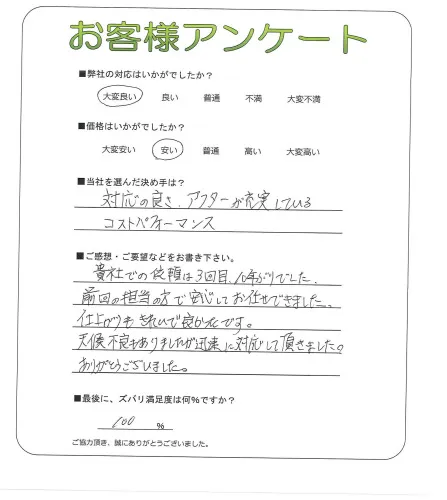 お客様アンケート
■弊社の対応はいかがでしたか？
大変良い 良い 普通 不満 大変不満
■価格はいかがでしたか？
大変安い 安い 普通 高い 大変高い
■当社を選んだ決め手は？
対応の良さ、アフターが充実している
コストパフォーマンス
■ご感想・ご要望などをお書き下さい。
貴社での依頼は3回目、10年ぶりでした。
前回の担当の方で安心してお任せできました。
仕上がりもきれいで良かったです。
天候不良もありましたが迅速に対応して頂きました。
ありがとうございました。
■最後に、ズバリ満足度は何％ですか？
100 %
ご協力頂き、誠にありがとうございました。